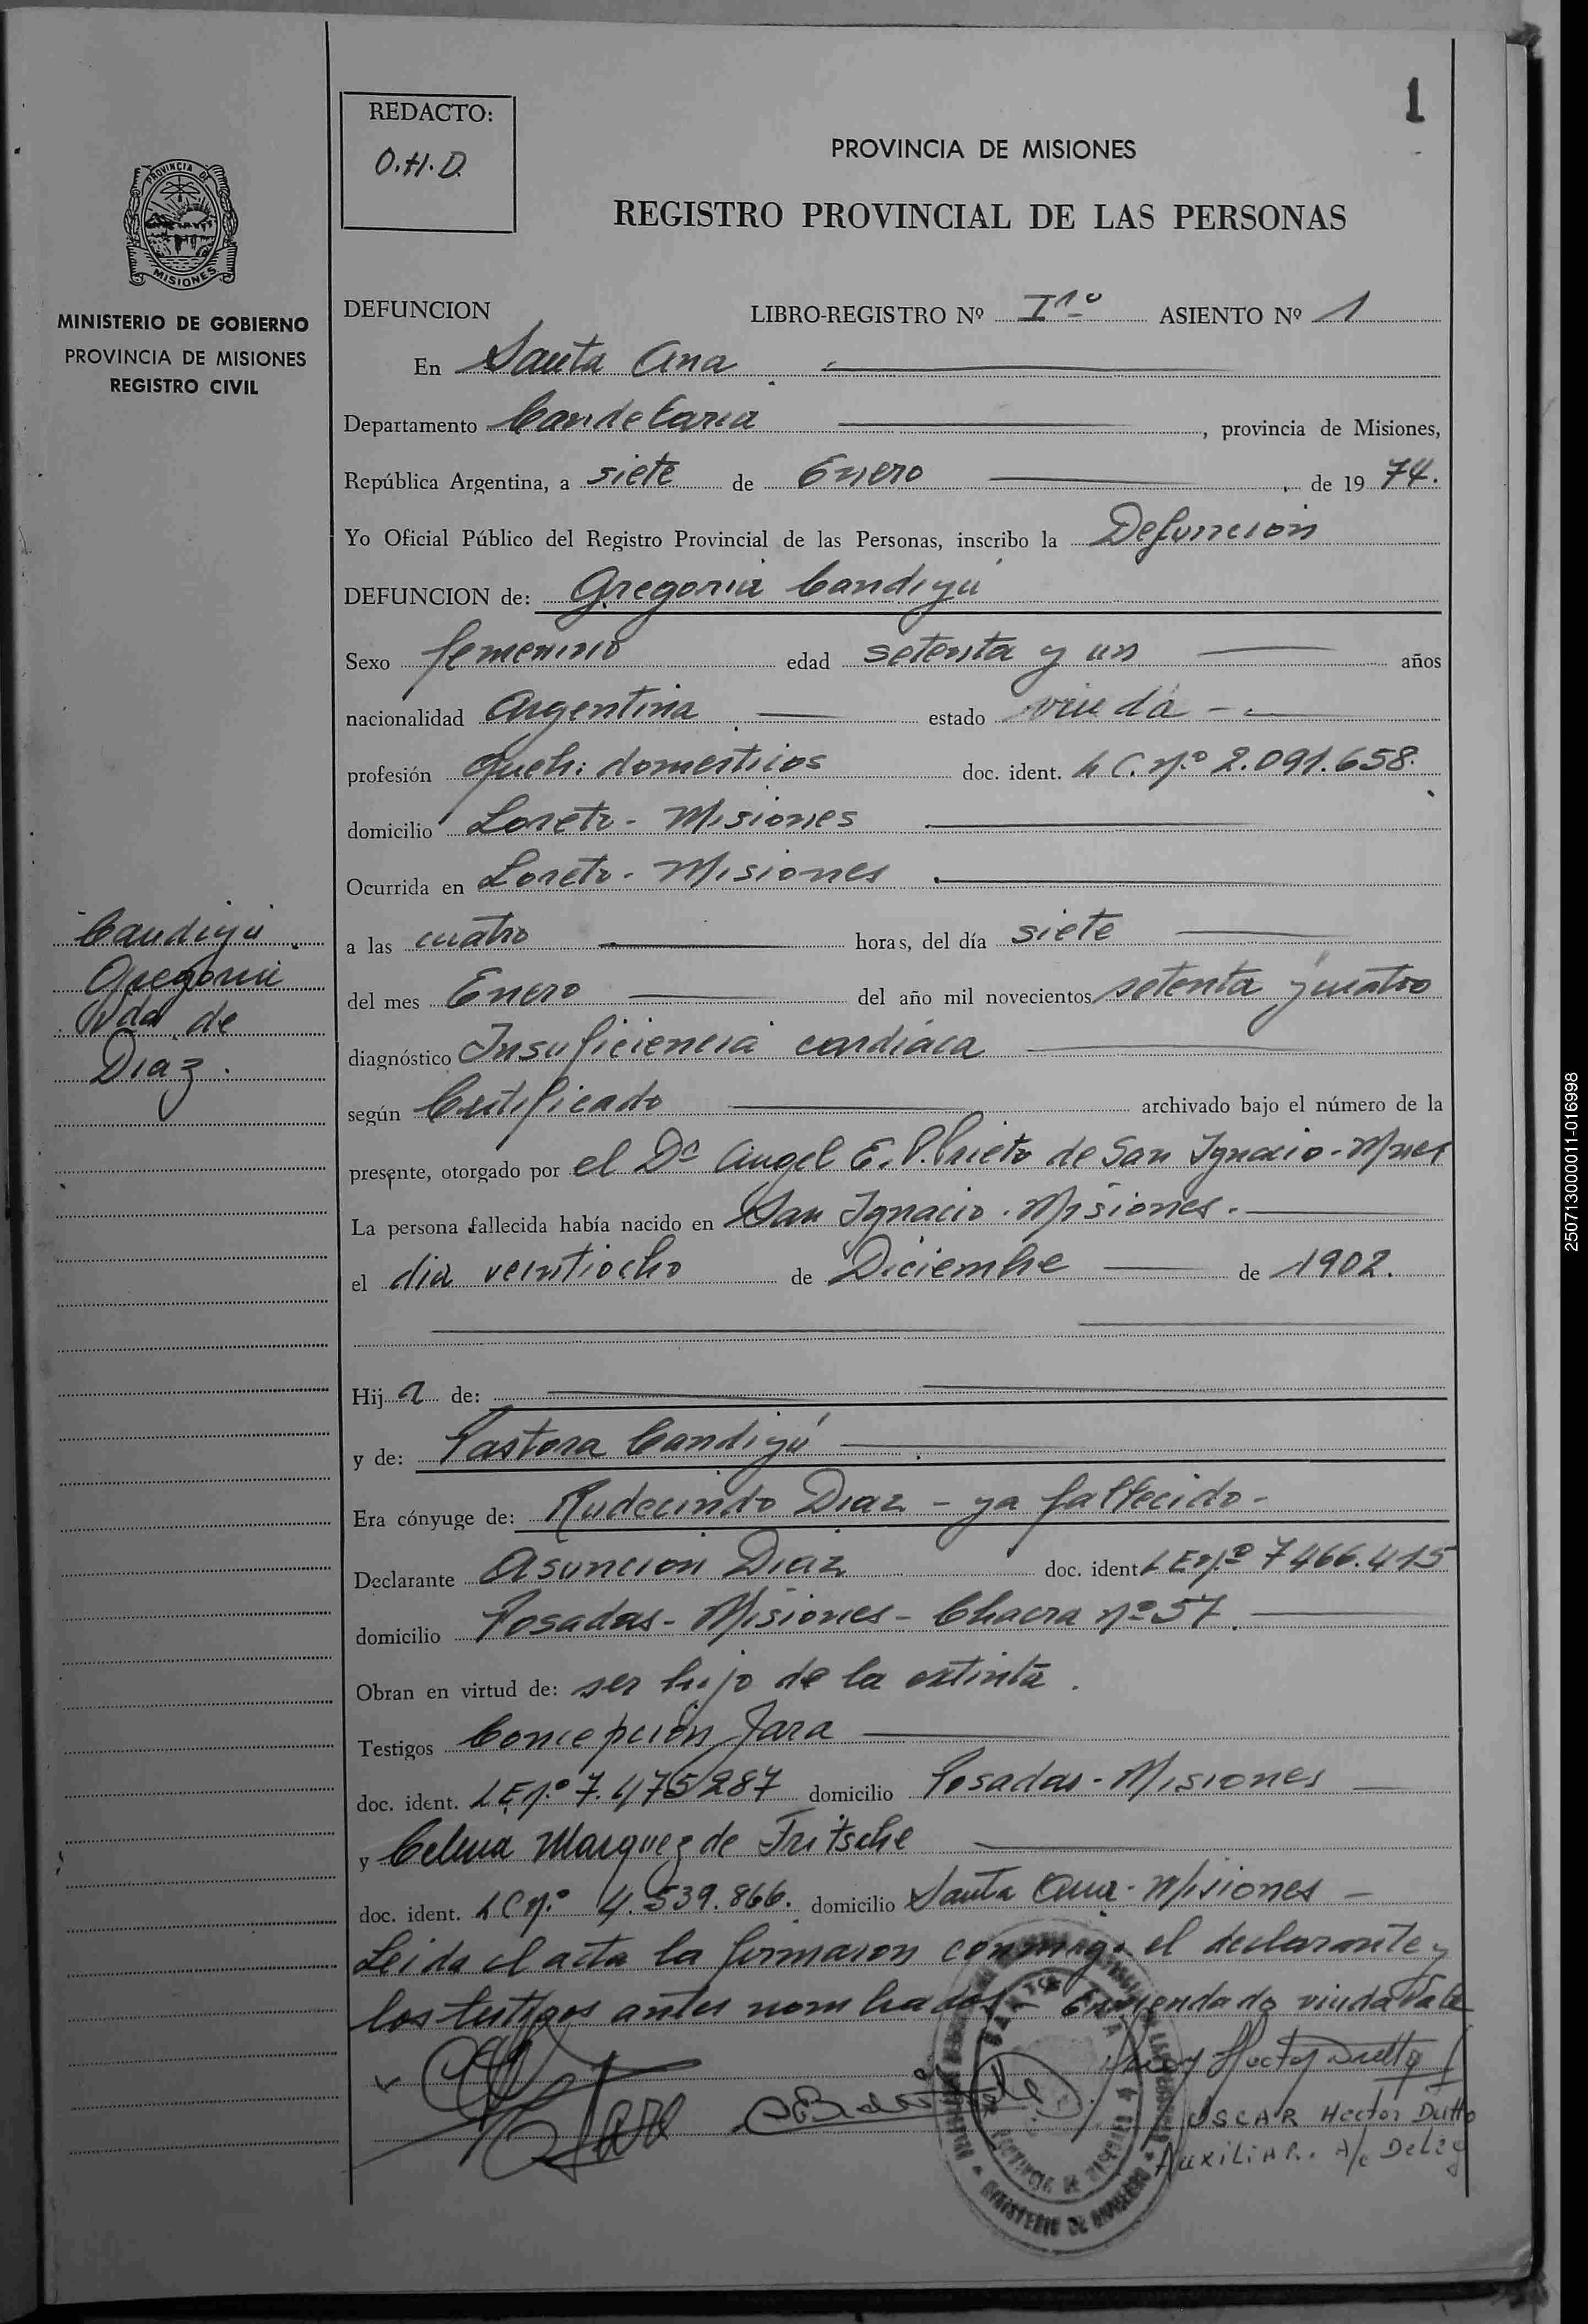 1
REDACTO:
O.H.D.
PROVINCIA DE MISIONES
REGISTRO PROVINCIAL DE LAS PERSONAS
PROVINCIA DE
MISIONES
MINISTERIO DE GOBIERNO
PROVINCIA DE MISIONES
REGISTRO CIVIL
DEFUNCION LIBRO-REGISTRO Nº I1º ASIENTO Nº 1
En Santa Ana
Departamento Candelaria, provincia de Misiones,
República Argentina, a siete de Enero de 19 74.
Yo Oficial Público del Registro Provincial de las Personas, inscribo la Defuncion
DEFUNCION de: Gregoria Candiyú
Sexo femenino edad setenta y un años
nacionalidad Argentina estado viuda
profesión queh: domesticos doc. ident. L C. nº 2.091.658.
domicilio Loreto - Misiones
Ocurrida en Loreto - Misiones
a las cuatro horas, del día siete
del mes Enero del año mil novecientos setenta y cuatro
Candiyú
Gregoria
Vda de
Diaz.
diagnóstico Insuficiencia cardiaca
según Certificado archivado bajo el número de la
presente, otorgado por el Dr Angel E. P. Prieto de San Ignacio - Mnes
La persona fallecida había nacido en San Ignacio - Misiones.
el dia veintiocho de Diciembre de 1902.
Hij a de:
y de: Pastora Candiyú
Era cónyuge de: Rudecindo Diaz - ya fallecido -
Declarante Asuncion Diaz doc. ident L E nº 7466.415
domicilio Posadas - Misiones - Chacra nº 57.
Obran en virtud de: ser hijo de la extinta.
Testigos Concepción Jara
doc. ident. L E nº 7.475287 domicilio Posadas - Misiones
y Celina Marquez de Fritsche
doc. ident. L C nº 4.539.866. domicilio Santa Ana - Misiones -
Leida el acta la firmaron conmigo el declarante y
los testigos antes nombrados - Enmendado viuda Vale
Jara
OSCAR Hector Dutto
Auxiliar. A/c Deleg
MINISTERIO DE GOBIERNO
250713000011-016998